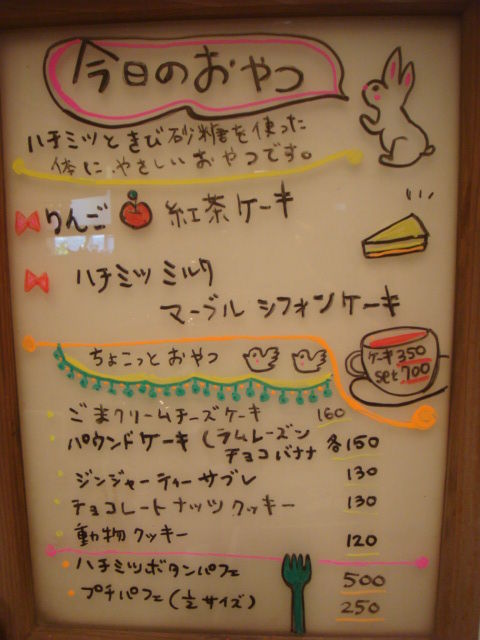 今日のおやつ
ハチミツときび砂糖を使った
体にやさしいおやつです。
りんご 紅茶ケーキ
ハチミツミルク
マーブルシフォンケーキ
ケーキ350
set 700
ちょこっとおやつ
ごまクリームチーズケーキ 160
パウンドケーキ(ラムレーズン
チョコバナナ 各150
ジンジャーティーサブレ 130
チョコレートナッツクッキー 130
動物クッキー 120
ハチミツボタンパフェ 500
プチパフェ(1/2サイズ) 250